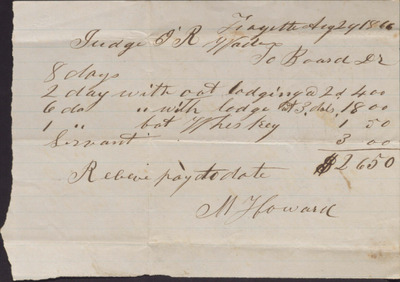 Fayette Aug 29 1866
Judge J R Wade
To Board Dr
8 days
2 day with out lodging @ 2d 4 00
6 da " with lodge at 3 dol. 18 00
1 " bot Whiskey 1 50
Servant 3 00
$26 50
Receive pay to date
M Howard